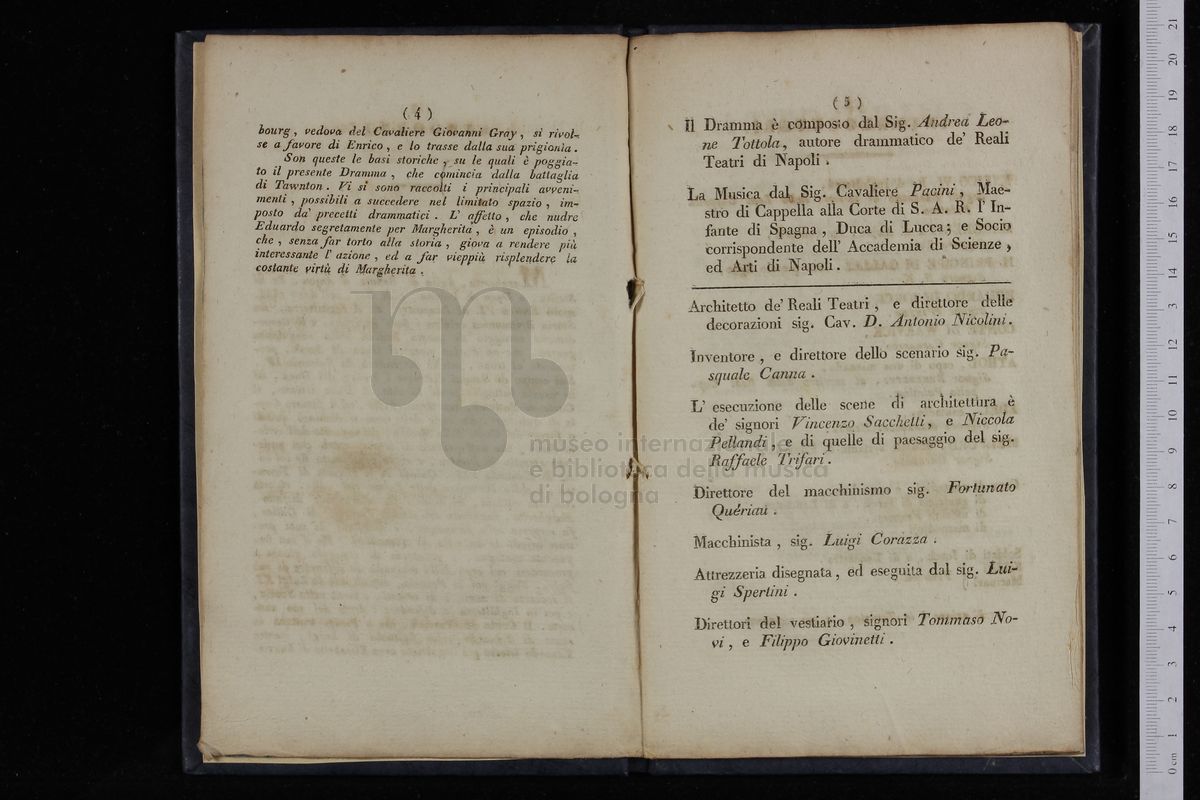 ( 4 )
bourg, vedova del Cavaliere Giovanni Gray, si rivol-
se a favore di Enrico, e lo trasse dalla sua prigionìa.
Son queste le basi storiche, su le quali è poggia-
to il presente Dramma, che comincia dalla battaglia
di Tawnton. Vi si sono raccolti i principali avveni-
menti, possibili a succedere nel limitato spazio, im-
posto da' precetti drammatici. L' affetto, che nudre
Eduardo segretamente per Margherita, è un episodio,
che, senza far torto alla storia, giova a rendere più
interessante l' azione, ed a far vieppiù risplendere la
costante virtù di Margherita.
( 5 )
Il Dramma è composto dal Sig. Andrea Leo-
ne Tottola, autore drammatico de' Reali
Teatri di Napoli.
La Musica dal Sig. Cavaliere Pacini, Mae-
stro di Cappella alla Corte di S. A. R. l' In-
fante di Spagna, Duca di Lucca; e Socio
corrispondente dell' Accademia di Scienze,
ed Arti di Napoli.
Architetto de' Reali Teatri, e direttore delle
decorazioni sig. Cav. D. Antonio Nicolini.
Inventore, e direttore dello scenario sig. Pa-
squale Canna.
L' esecuzione delle scene di architettura è
de' signori Vincenzo Sacchetti, e Niccola
Pellandi, e di quelle di paesaggio del sig.
Raffaele Trifari.
Direttore del macchinismo sig. Fortunato
Quériau.
Macchinista, sig. Luigi Corazza.
Attrezzeria disegnata, ed eseguita dal sig. Lui-
gi Spertini.
Direttori del vestiario, signori Tommaso No-
vi, e Filippo Giovinetti.
museo internazionale
e biblioteca della musica
di bologna
0 cm 1 2 3 4 5 6 7 8 9 10 11 12 13 14 15 16 17 18 19 20 21